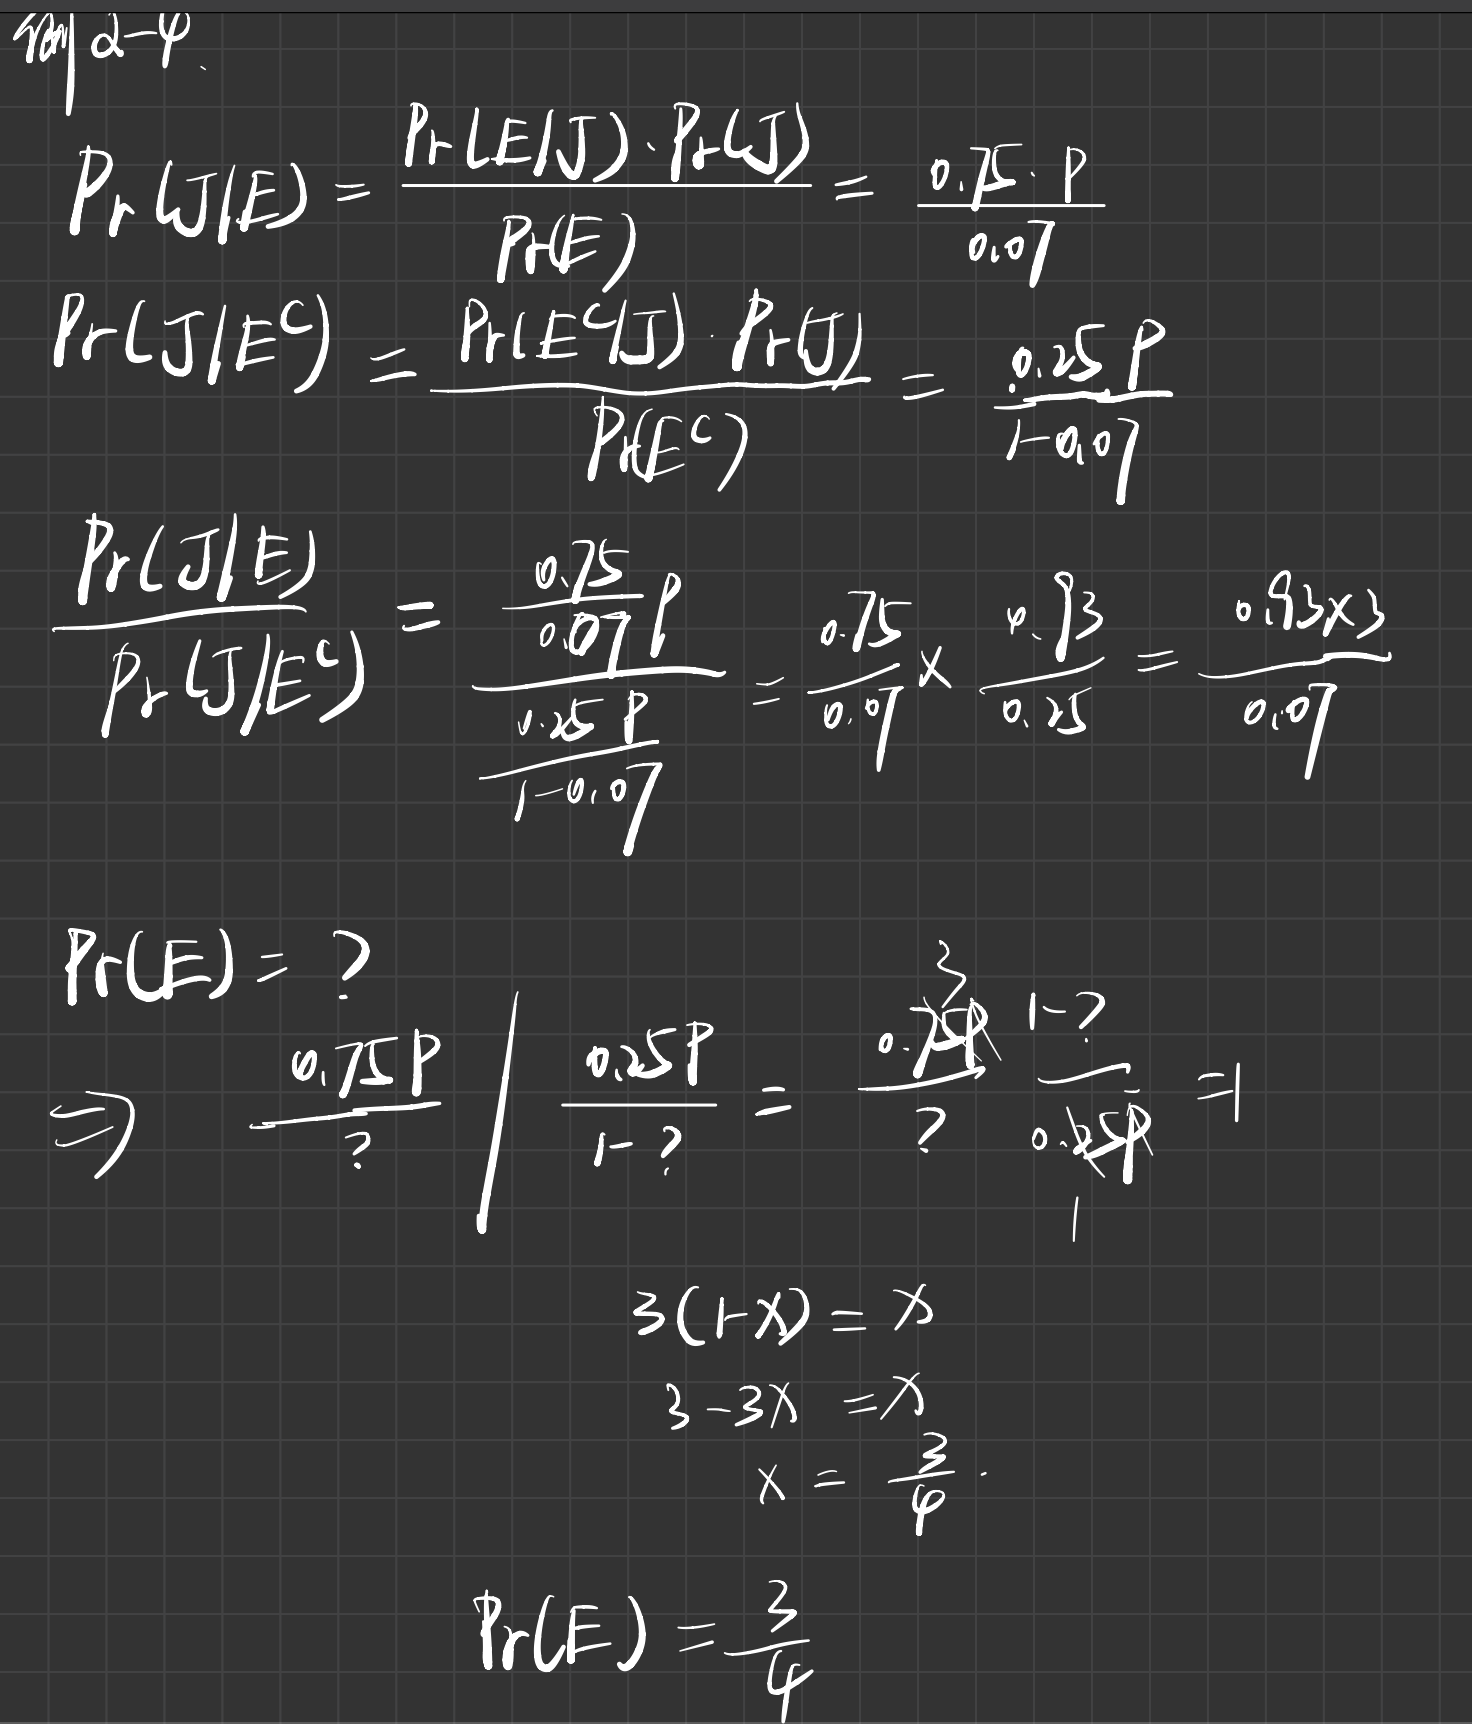 例 2-4.
Pr(J/E) = Pr(E/J)·Pr(J) / Pr(E) = 0.75·P / 0.07
Pr(J/E^c) = Pr(E^c/J)·Pr(J) / Pr(E^c) = 0.25P / 1-0.07
Pr(J/E) / Pr(J/E^c) = 0.75/0.07 P / 0.25P/1-0.07 = 0.75/0.07 × 0.93/0.25 = 0.93×3 / 0.07
Pr(E) = ?
⇒ 0.75P/? / 0.25P/1-? = 3 0.75P/? 1-?/0.25P 1 = 1
3(1-x) = x
3-3x = x
x = 3/4.
Pr(E) = 3/4